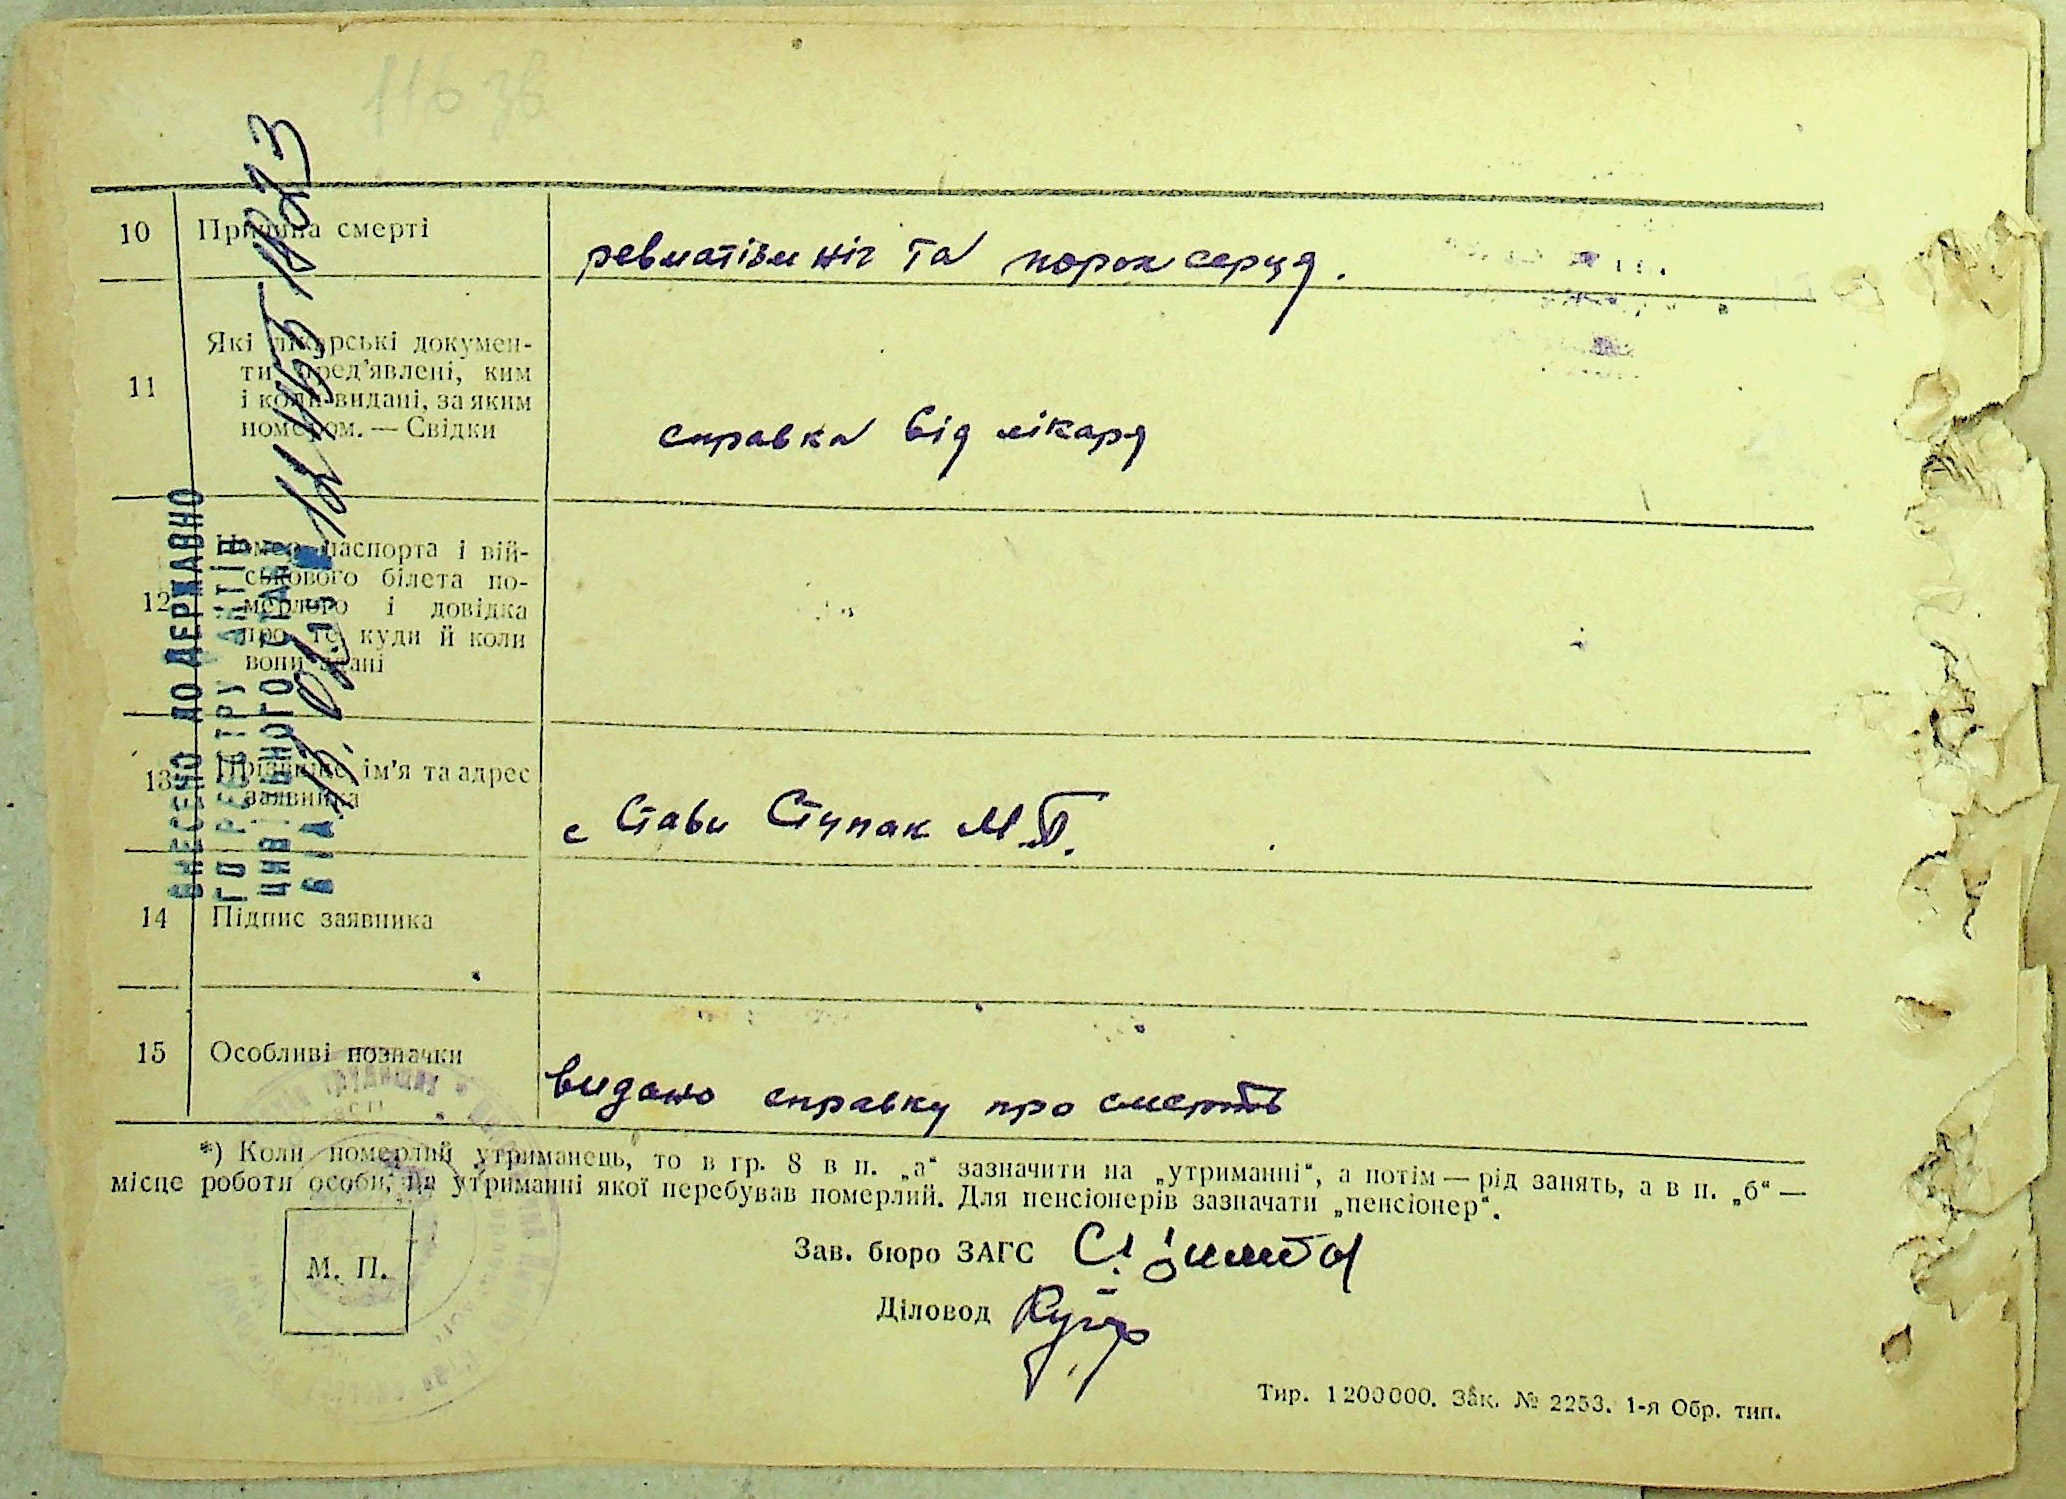 116 зв
10 Причина смерті
ревматізм ніг та порок серця.
11 Які лікарські докумен-
ти пред'явлені, ким
і коли видані, за яким
номером. — Свідки
справка від лікаря
12 Номер паспорта і вій-
ськового білета по-
мерлого і довідка
про те куди й коли
вони здані
13 Прізвище, ім'я та адрес
заявника
с Стави Ступак М.П.
14 Підпис заявника
15 Особливі позначки
видано справку про смерть
*) Коли померлий утриманець, то в гр. 8 в п. „а“ зазначити на „утриманні“, а потім — рід занять, а в п. „б“ —
місце роботи особи, на утриманні якої перебував померлий. Для пенсіонерів зазначати „пенсіонер“.
М. П.
Зав. бюро ЗАГС
Діловод
Тир. 1200000. Зак. № 2253. 1-я Обр. тип.
ВНЕСЕНО ДО ДЕРЖАВНО
ГО РЕЄСТРУ АКТІВ
ЦИВІЛЬНОГО СТАНУ
ВІД